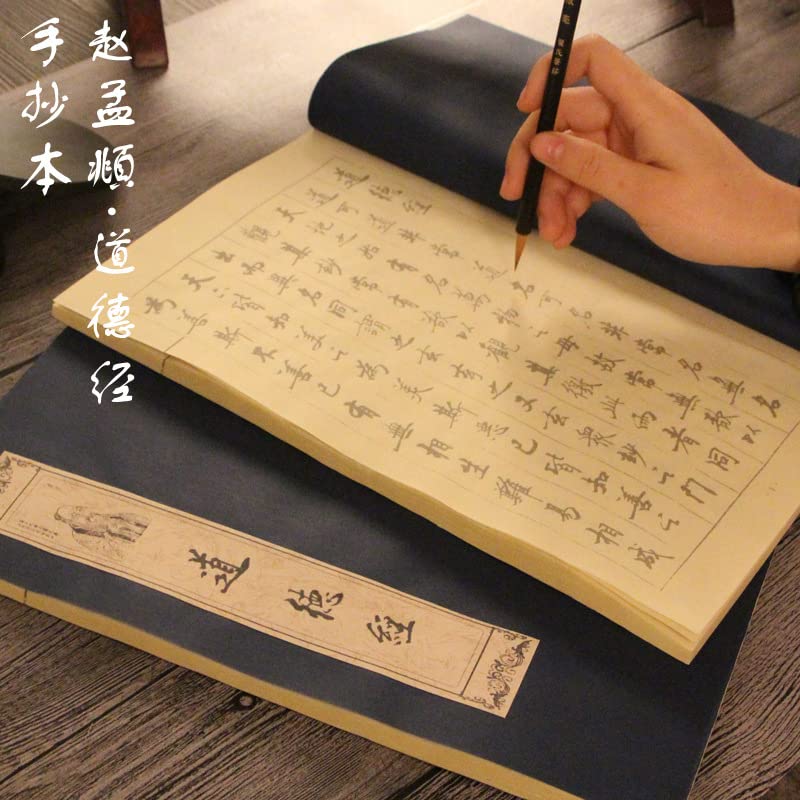 赵孟頫·道德经
手抄本
道德經
道可道非常道名可名非常名無名
天地之始有名萬物之母故常無欲以
觀其妙常有欲以觀其徼此兩者同
出而異名同謂之玄玄之又玄眾妙之門
天下皆知美之為美斯惡已皆知善之
為善斯不善已有無相生難易相成
道德經